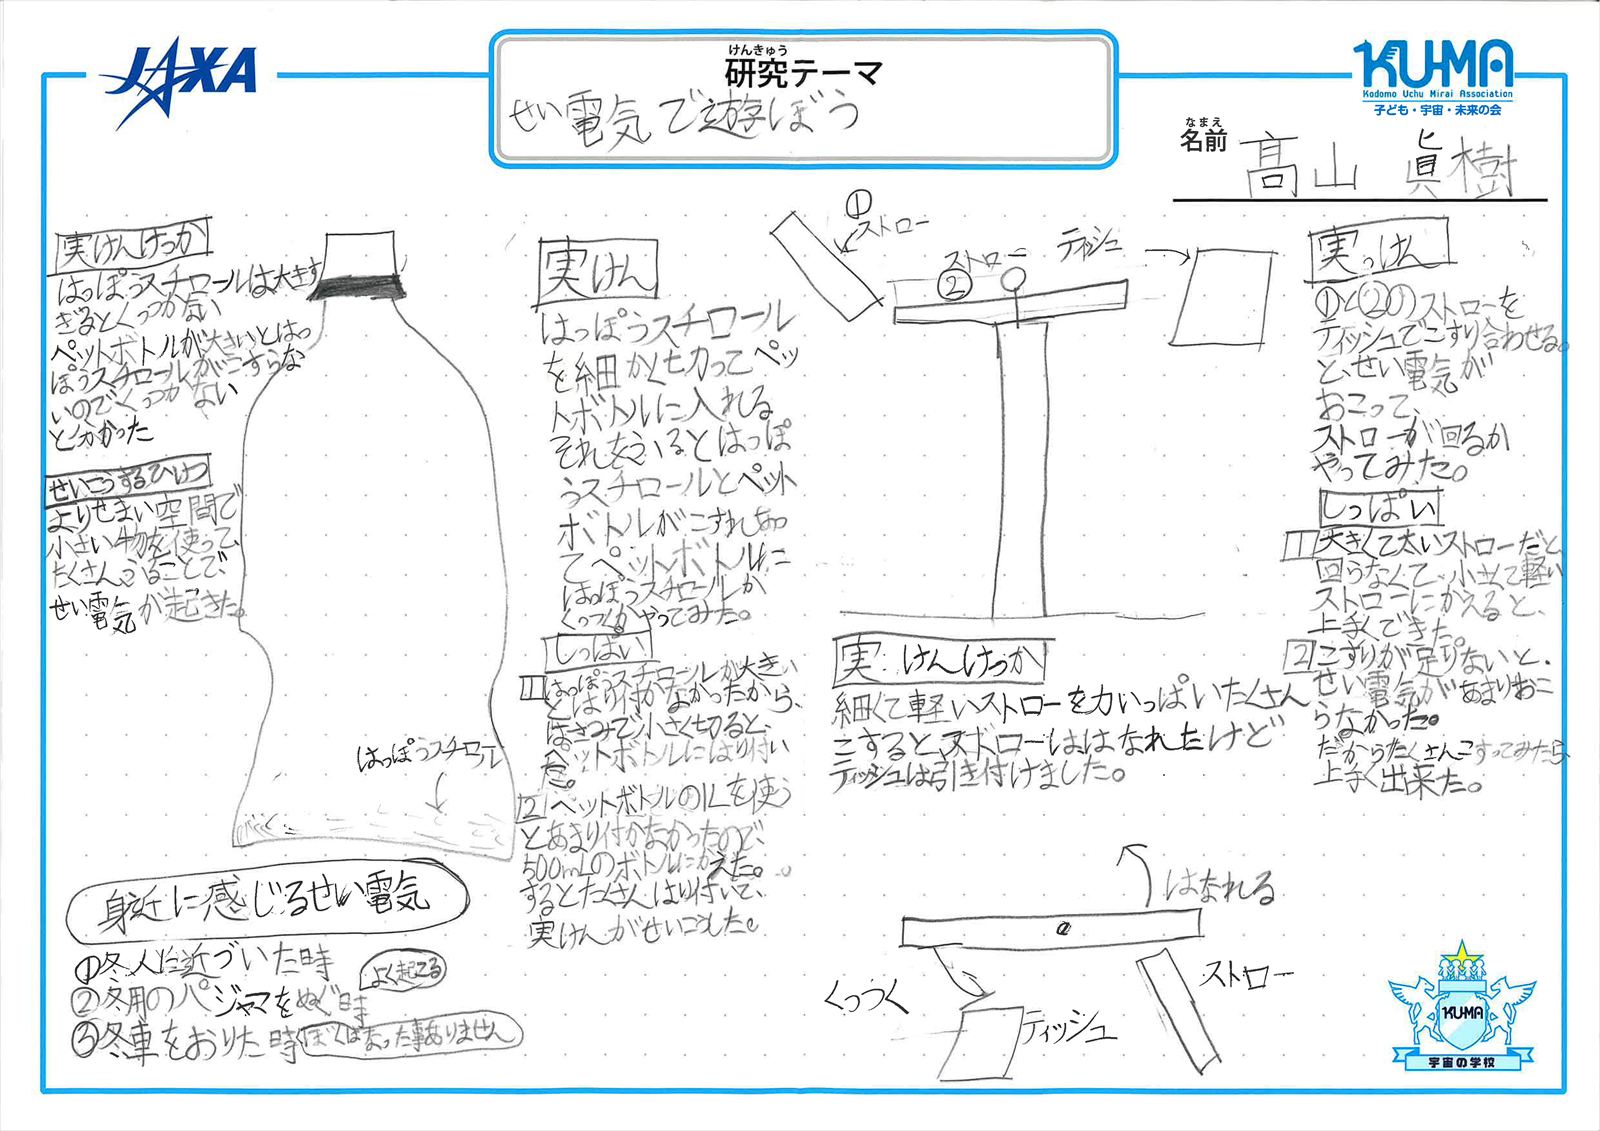 JAXA
けんきゅう
研究テーマ
せい電気で遊ぼう
KUMA
Kodomo Uchu Mirai Association
子ども・宇宙・未来の会
なまえ
名前
髙山 眞樹
実けんけっか
はっぽうスチロールは大きす
ぎるとくっつかない
ペットボトルが大きいとはっ
ぽうスチロールがこすらな
いのでくっつかない
と分かった
せいこうするひけつ
よりせまい空間で
小さい物を使って、
たくさんふることで、
せい電気が起きた。
はっぽうスチロール
実けん
はっぽうスチロール
を細かく切ってペッ
トボトルに入れる
それをふるとはっぽ
うスチロールとペット
ボトルがこすれあっ
てペットボトルに
はっぽうスチロールが
くっつくかやってみた。
しっぱい
1 はっぽうスチロールが大きい
とはり付かなかったから、
はさみで小さく切ると、
ペットボトルにはり付い
た。
2 ペットボトルの1Lを使う
とあまり付かなかったので、
500mLのボトルにかえた。
するとたくさんはり付いて、
実けんがせいこうした。
身近に感じるせい電気
①冬人に近づいた時
②冬用のパジャマをぬぐ時
よく起こる
③冬車をおりた時
ぼくはなった事ありません
①
ストロー
ストロー
②
ティッシュ
実っけん
①と②のストローを
ティッシュでこすり合わせる。
と、せい電気が
おこって、
ストローが回るか
やってみた。
しっぱい
1 大きくて太いストローだと
回らなくて、小さくて軽い
ストローにかえると、
上手くできた。
2 こすりが足りないと、
せい電気があまりおこ
らなかった。
だからたくさんこすってみたら
上手く出来た。
実けんけっか
細くて軽いストローを力いっぱいたくさん
こするとストローははなれたけど
ティッシュは引き付けました。
はなれる
くっつく
ティッシュ
ストロー
KUMA
宇宙の学校